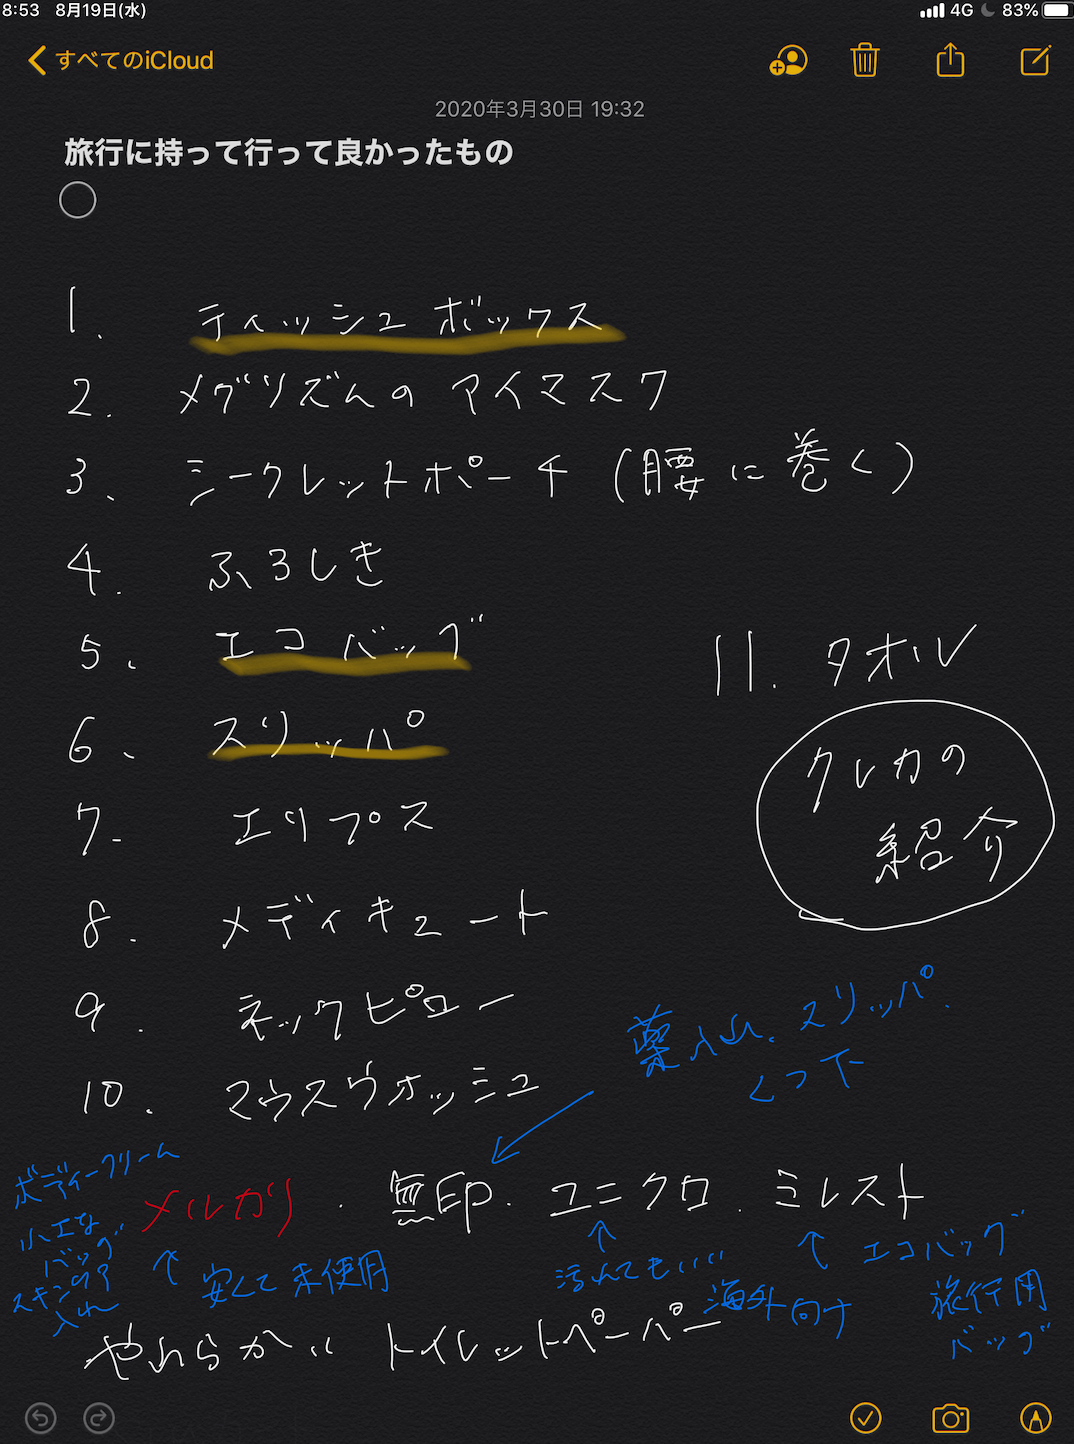 8:53 8月19日(水) 4G 83%
すべてのiCloud
2020年3月30日 19:32
旅行に持って行って良かったもの
1. ティッシュボックス
2. メグリズムの アイマスク
3. シークレットポーチ (腰に巻く)
4. ふろしき
5. エコバッグ
11. タオル
6. スリッパ
クレカの
紹介
7. エリプス
8. メディキュート
9. ネックピロー
薬入れ、スリッパ、
くつ下
10. マウスウォッシュ
ボディークリーム
メルカリ ・ 無印. ユニクロ. ミレスト
小さな
バッグ
スキンケア
入れ
安くて未使用
汚れてもいい
海外向け
エコバッグ
旅行用
バッグ
やわらかい トイレットペーパー